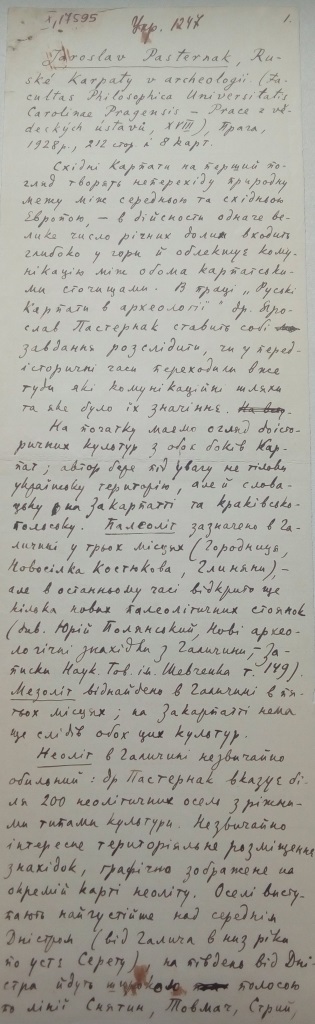 X, 17595
Укр. 1247
1.
Jaroslav Pasternak, Ru-
ské Karpaty v archeologii (Fa-
cultas Philosophica Universitatis
Carolinae Pragensis – Prace z vě-
deckých ústavů, XVIII), Прага,
1928 р., 212 стор. й 8 карт.
Східні Карпати на перший по-
гляд творять непереходну природну
межу між середньою та східньою
Европою, – в дійсности одначе ве-
лике число річних долин входить
глибоко у гори й облекшує кому-
нікацію між обома карпатськи-
ми сточищами. В праці „Руські
Карпати в археології" др. Яро-
слав Пастернак ставить собі
завдання розслідити, чи у перед-
історичні часи переходили вже
туди які комунікаційні шляхи
та яке було їх значіння.
На початку маємо огляд доісто-
ричних культур з обох боків Кар-
пат; автор бере під увагу не тільки
українську територію, але й слова-
цьку на Закарпатті та краківсько-
польську. Палеоліт зазначено в Га-
личині у трьох місцях (Городниця,
Новосілка Костюкова, Глиняни), –
але в останньому часі відкрито ще
кілька нових палеолітичних стоянок
(див. Юрій Полянський, Нові архео-
логічні знахідки з Галичини, – За-
писки Наук. Тов. ім. Шевченка т. 149).
Мезоліт віднайдено в Галичині в пя-
тьох місцях; на Закарпатті нема
ще слідів обох цих культур.
Неоліт в Галичині незвичайно
обильний: др Пастернак вказує бі-
ля 200 неолітичних осель з ріжни-
ми типами культури. Незвичайно
інтересне територіяльне розміщення
знахідок, графічно зображене на
окремій карті неоліту. Оселі висту-
пають найгустійше над середнім
Дністром (від Галича в низ ріки
по устя Серету), на південь від Дні-
стра йдуть широкою полосою
по лінії Снятин, Товмач, Стрий,